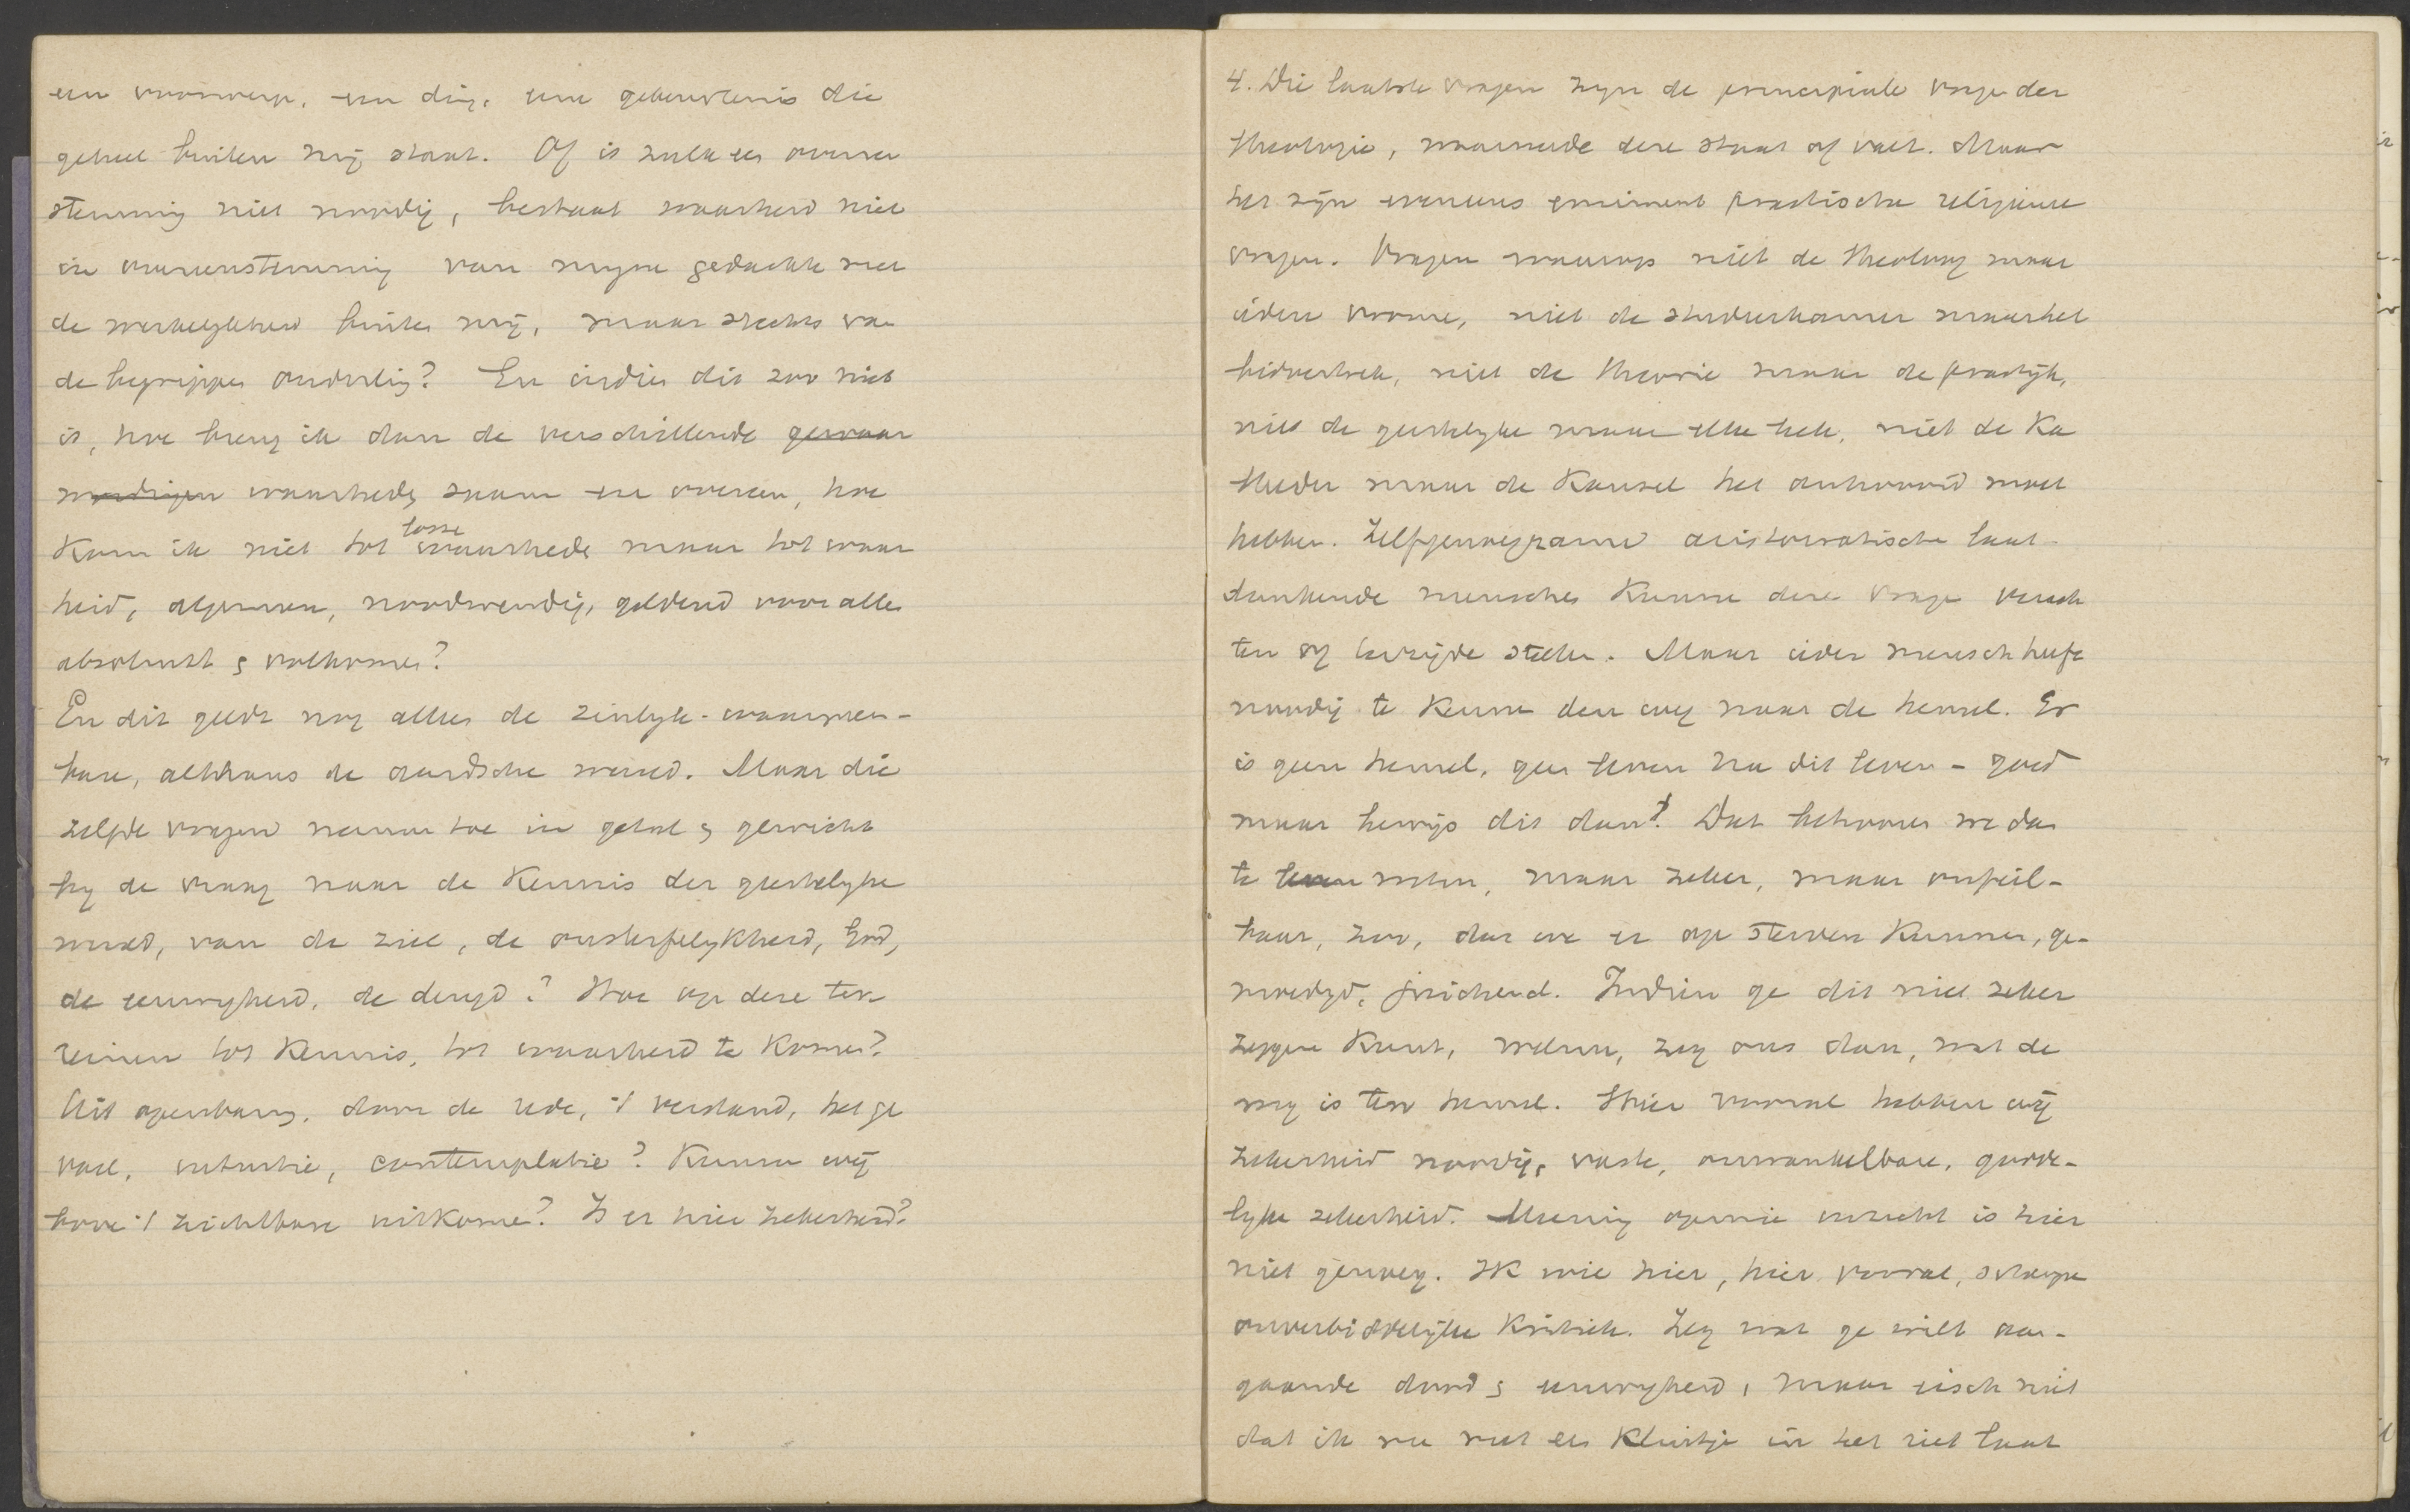 een voorwerp, een ding, eene gebeurtenis die
geheel buiten mij staat. Of is zulk een overeen
stemming niet noodig, bestaat waarheid niet
in overeenstemming van mijne gedachte met
de werkelykheid buiten mij, maar slechts van
de begrippen onderling? En indien dit zoo niet
is, hoe breng ik dan de verschillende gewaar
wordingen waarheden saam en overeen, hoe
Kom ik niet tot losse waarheden maar tot waar
heid, algemeen, noodwendig, geldend voor allen
absoluut & volkomen?
En dit geldt nog alleen de zinlyk-waarneem-
bare, althans de aardsche wereld. Maar die
zelfde vragen nemen toe in getal & gewicht
by de vraag naar de Kennis der geestelyke
wereld, van de ziel, de onsterfelykheid, God,
de eeuwigheid, de deugd? Hoe op deze ter
reinen tot Kennis, tot waarheid te Komen?
Uit openbaring, door de rede, 't verstand, het ge
voel, intuitie, contemplatie? Kunnen wij
boven 't zichtbare uitkomen? Is er hier zekerheid?
4. Die laatste vragen zijn de principiele vragen der
theologie, waarmede deze staat of valt. Maar
het zijn eveneens eminent practische religieuse
vragen. Vragen waarop niet de theoloog maar
iedere vrome, niet de studeerkamer maar het
bidvertrek, niet de theorie maar de practijk,
niet de geestelyke maar elke leek, niet de Ka
theder maar de Kansel het antwoord moet
hebben. Zelfgenoegzame aristocratische laat-
dunkende menschen Kunnen deze vragen verach
ten of terzijde stellen. Maar ieder mensch heeft
noodig te Kennen den weg naar de hemel. Er
is geen hemel, geen leven na dit leven - goed
maar bewijs dit dan! Dat behooren we dan
te weten, maar zeker, maar onfeil-
baar, zoo, dat we er op sterven Kunnen, ge-
moedigd, juichend. Indien ge dit niet zeker
zeggen Kunt, welnu, zeg ons dan, wat de
weg is ten hemel. Hier vooral hebben wij
zekerheid noodig, vaste, onwankelbare, godde-
lyke zekerheid. Meening opinie inzicht is hier
niet genoeg. IK wil hier, hier vooral, scherpe
onverbiddelijke Kritiek. Zeg wat ge wilt aan-
gaande dood & eeuwigheid, maar eisch niet
dat ik me met een Kluitje in het riet laat